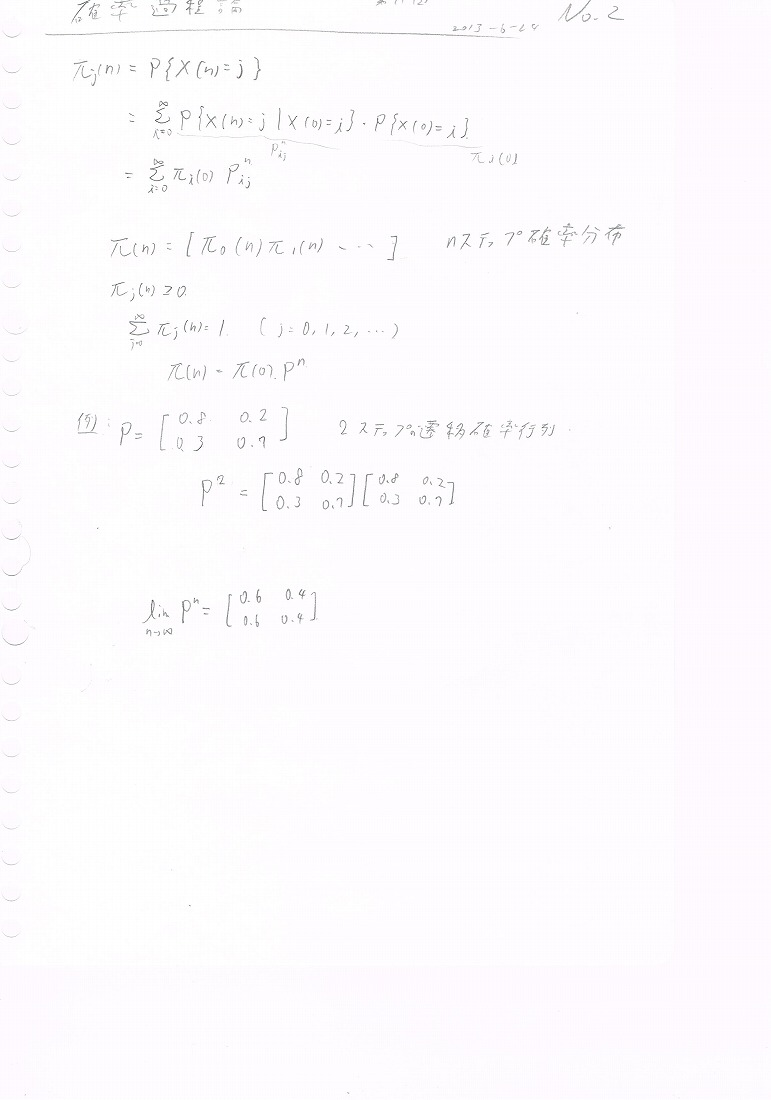 確率過程論 No.2
2013-6-24
π_j(n) = P{X(n)=j}
= Σ_{i=0}^{∞} P{X(n)=j | X(0)=i}・P{X(0)=i}
P_{ij}^n π_i(0)
= Σ_{i=0}^{∞} π_i(0) P_{ij}^n
π(n) = [π_0(n) π_1(n) …] nステップ確率分布
π_j(n) ≥ 0.
Σ_{j=0}^{∞} π_j(n) = 1. (j=0, 1, 2, …)
π(n) = π(0). P^n
例: P = [0.8 0.2
0.3 0.7] 2ステップの遷移確率行列.
P^2 = [0.8 0.2 ][0.8 0.2
0.3 0.7][0.3 0.7]
lim_{n→∞} P^n = [0.6 0.4
0.6 0.4]